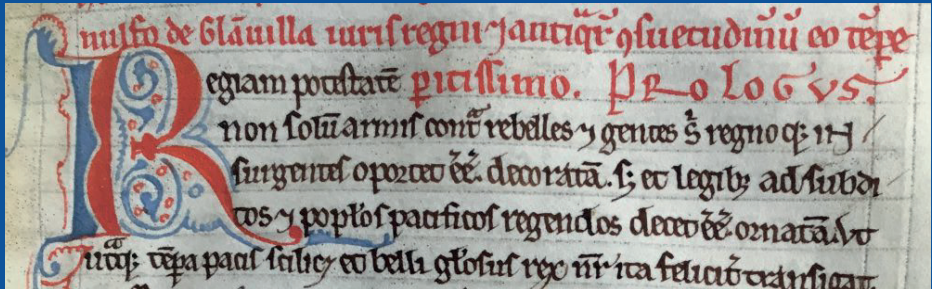 nulfo de Glāuilla iuris regni ⁊ antiqͣrͫ ꝯsuetudinū eo tēpe
Regiam potestatē ꝑitissimo. PROLOGVS.
non solū armis contͣ rebelles ⁊ gentes s̄ regnoqꝫ in
surgentes oportet ēē. decoratā. sꝫ et legibꝫ ad subdi
tos ⁊ popłos pacificos regendos decet ēē ornatā. vt
utͣqꝫ tēpa pacis scilicꝫ et belli gło̅sus rex nr̄ ita felicit̄ transigat